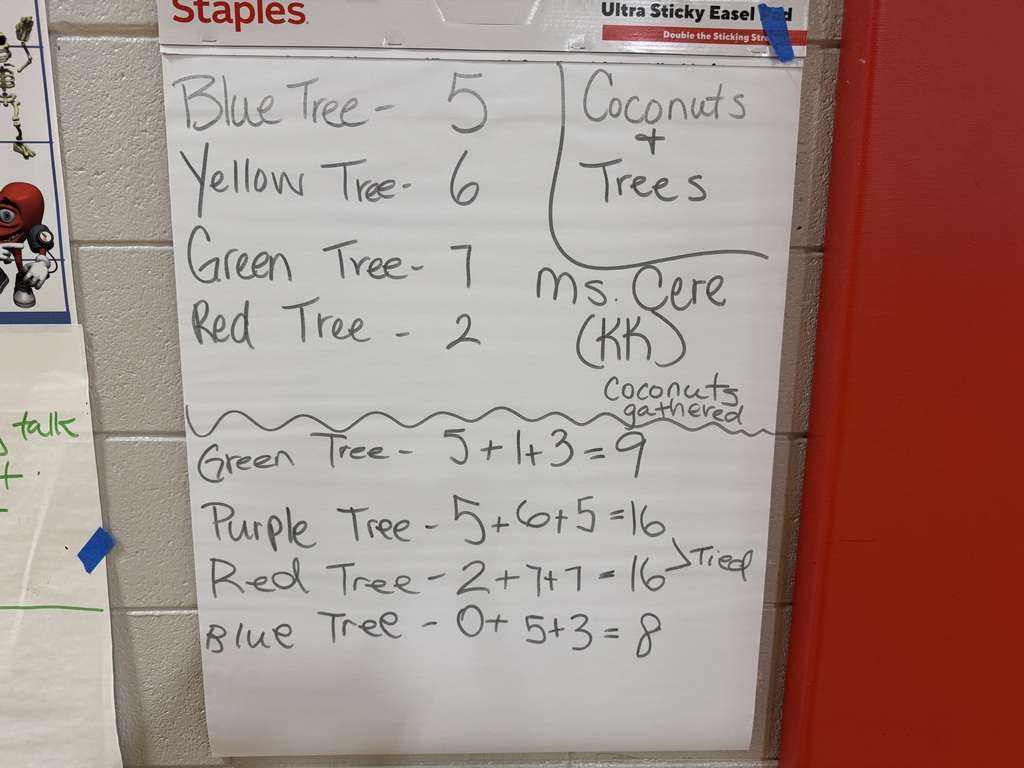 Staples
Ultra Sticky Easel Pad
Double the Sticking
Blue Tree - 5
Yellow Tree - 6
Green Tree - 7
Red Tree - 2
Coconuts
+
Trees
Ms. Cere
(KK)
Coconuts
gathered
Green Tree - 5+1+3=9
Purple Tree - 5+6+5=16
Red Tree - 2+7+7=16
Tied
Blue Tree - 0+5+3=8
talk